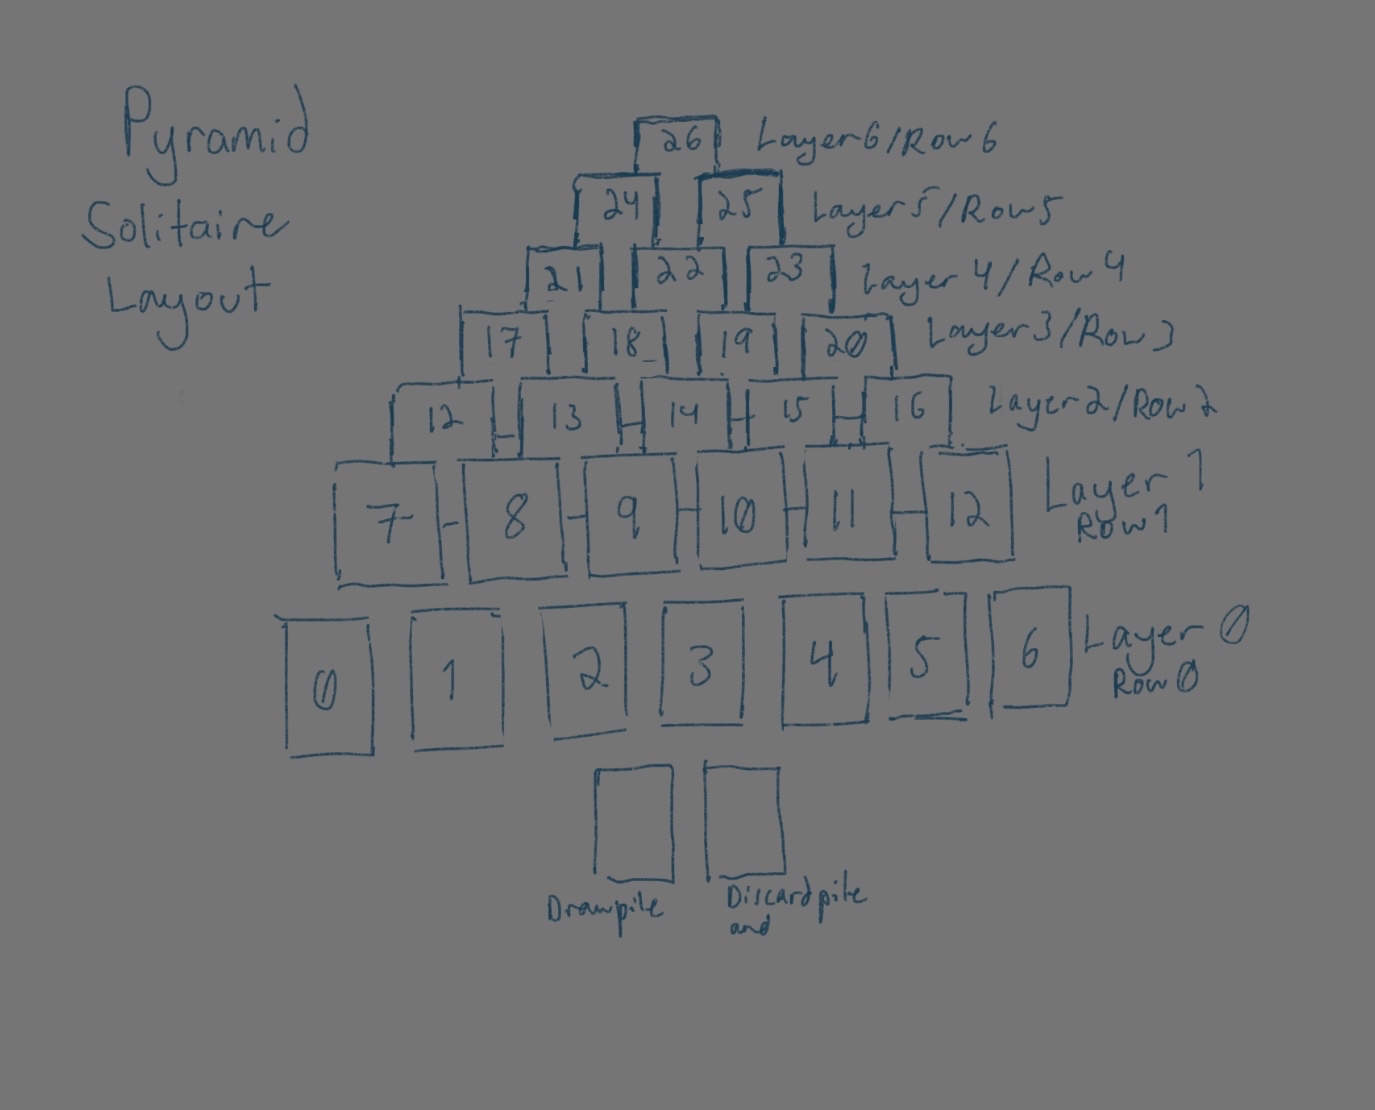 Pyramid
Solitaire
Layout
26 Layer 6/Row 6
24 25 Layer 5/Row 5
21 22 23 Layer 4/Row 4
17 18 19 20 Layer 3/Row 3
12 13 14 15 16 Layer 2/Row 2
7 8 9 10 11 12 Layer 1
Row 1
0 1 2 3 4 5 6 Layer 0
Row 0
Drawpile Discardpile
and